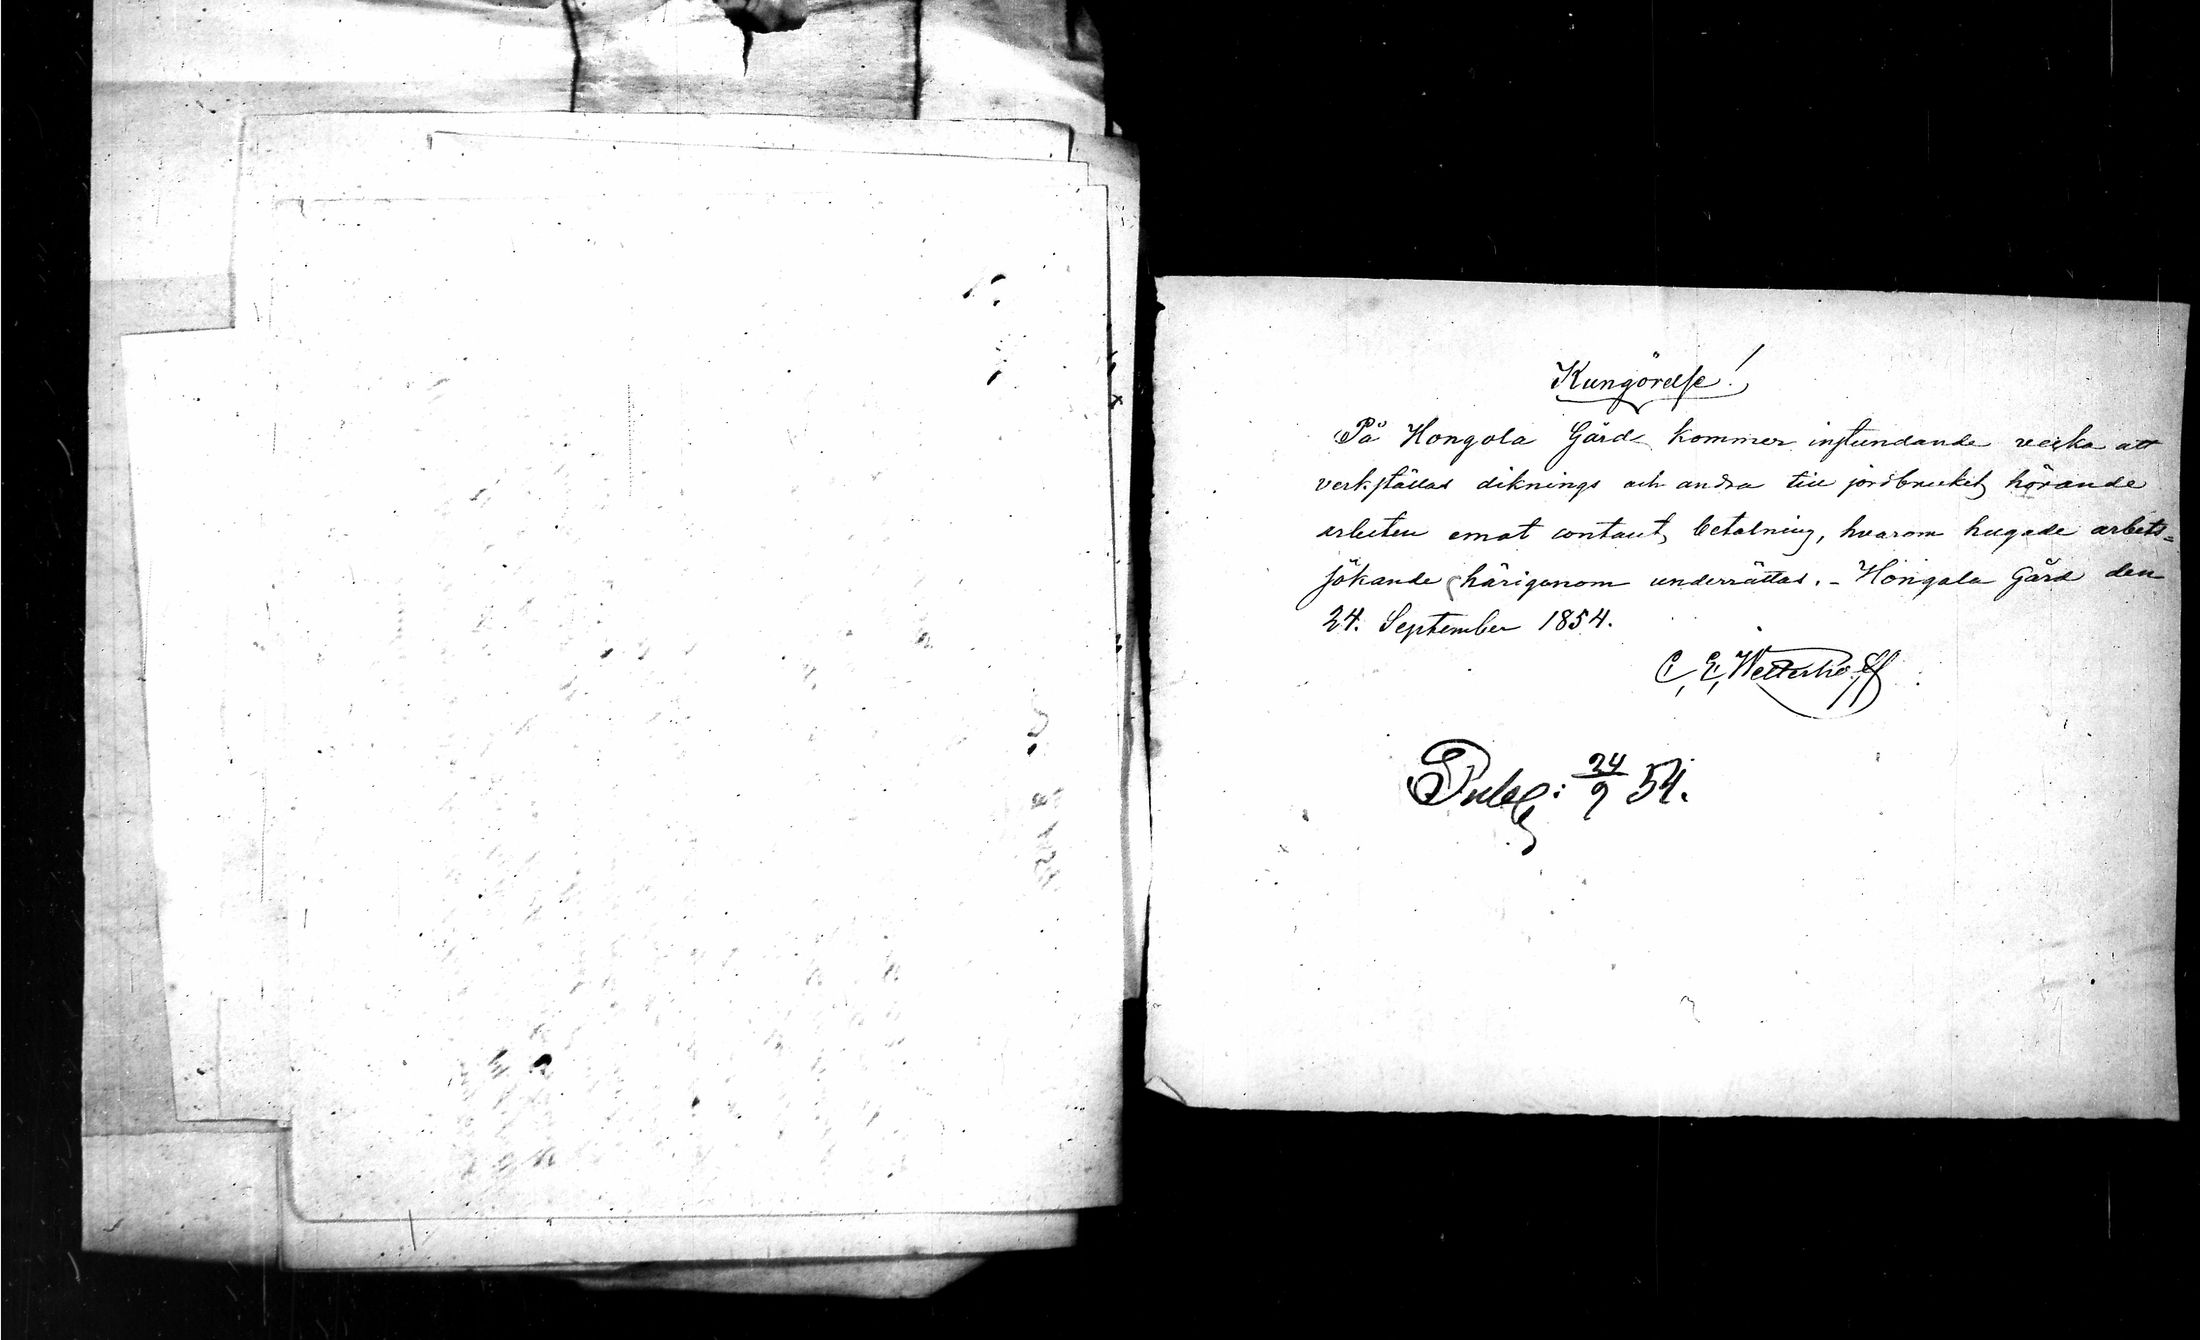 Kungörelse!
På Hongola Gård kommer instundande vecka att
verkställas diknings och andra till jordbruket hörande
arbeten emot contant betalning, hvarom hugade arbets-
sökande härigenom underrättas. - Hongola Gård den
24. September 1854.
C. E. Wetterhoff
Publ: 24/9 54.